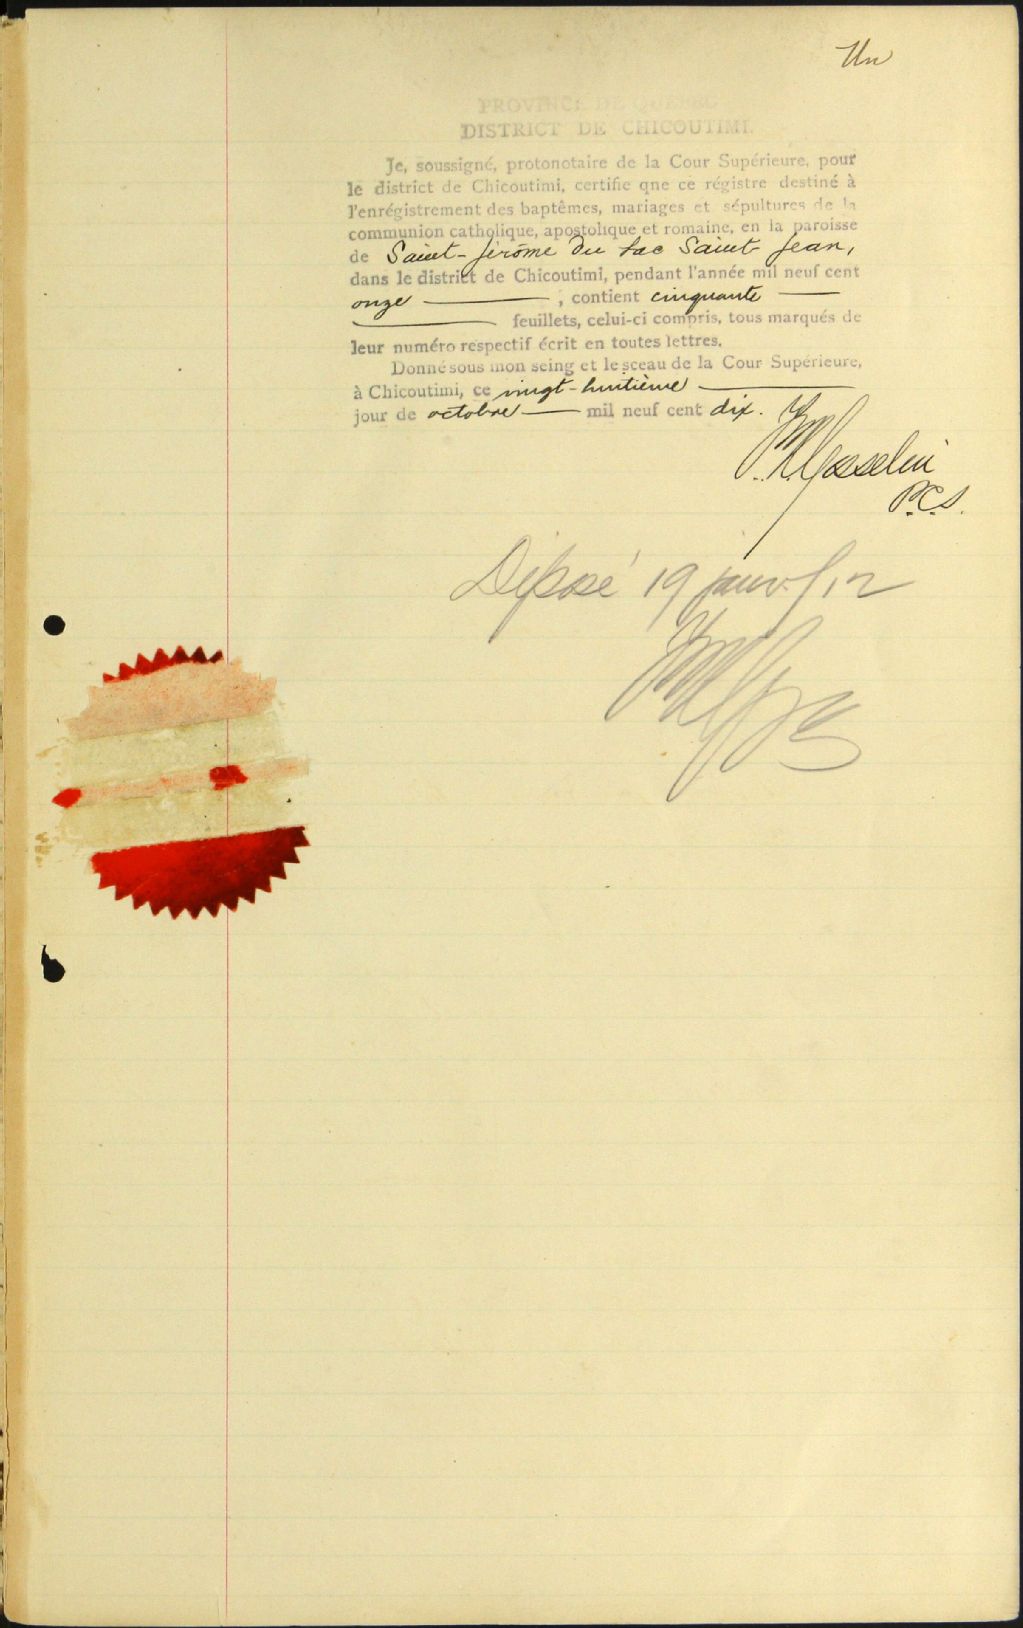 Un
PROVINCE DE QUEBEC
DISTRICT DE CHICOUTIMI.
Je, soussigné, protonotaire de la Cour Supérieure, pour
le district de Chicoutimi, certifie qne ce régistre destiné à
l'enrégistrement des baptêmes, mariages et sépultures de la
communion catholique, apostolique et romaine, en la paroisse
de Saint-Jérôme du Lac Saint-Jean,
dans le district de Chicoutimi, pendant l'année mil neuf cent
onze ; contient cinquante
feuillets, celui-ci compris, tous marqués de
leur numéro respectif écrit en toutes lettres.
Donné sous mon seing et le sceau de la Cour Supérieure,
à Chicoutimi, ce vingt-huitième
jour de octobre mil neuf cent dix.
Gosselin
P.C.S.
Déposé 19 janv. 12